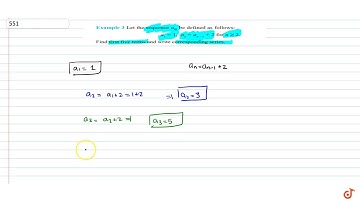 551
Example 3 Let the sequence aₙ be defined as follows:
a₁ = 1, aₙ = aₙ₋₁ + 2 for n ≥ 2.
Find first five terms and write corresponding series.
a₁ = 1
aₙ = aₙ₋₁ + 2
a₂ = a₁+2 = 1+2 ⇒ a₂ = 3
a₃ = a₂+2 ⇒ a₃ = 5